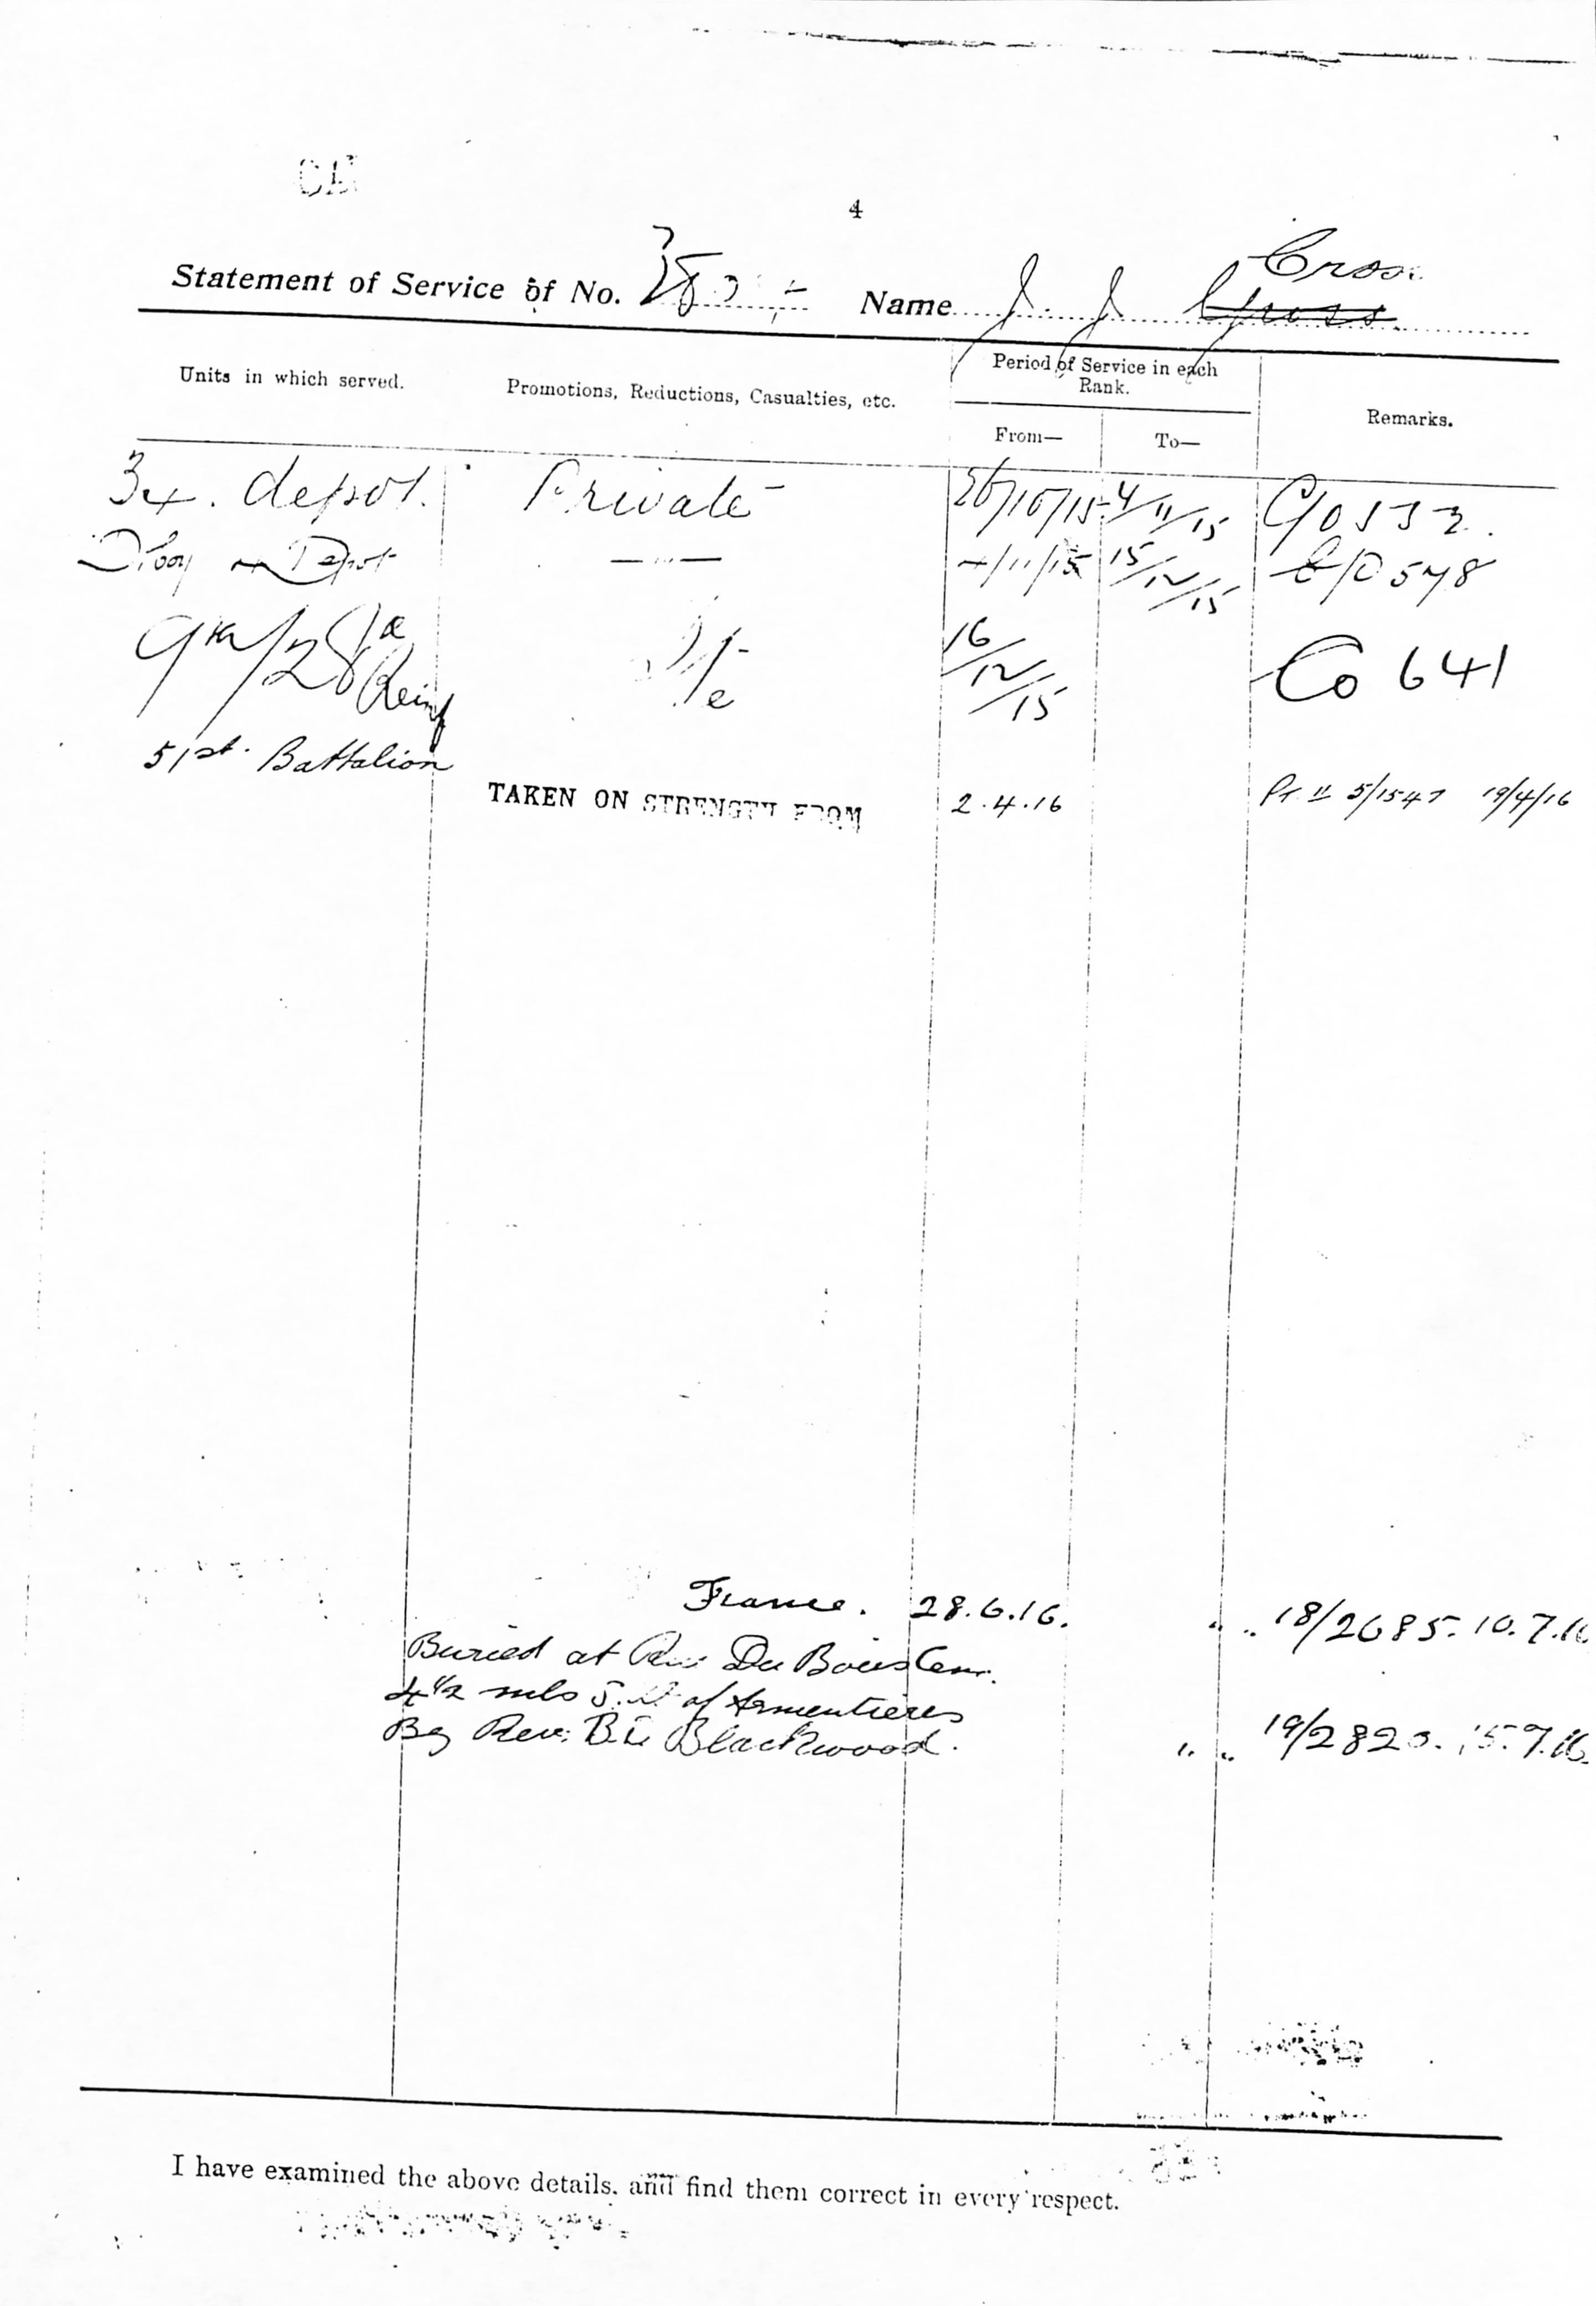 4
Statement of Service of No. Name J. J. Gross Cross
Units in which served. Promotions, Reductions, Casualties, etc. Period of Service in each Rank. Remarks.
From— To—
34. depot. Private 26/10/15 4/11/15 C/o 532.
D Coy Depot — " — 4/11/15 15/12/15 C/O 548
9th/28th Reinf Pte 16/12/15 Co 641
51st. Battalion
TAKEN ON STRENGTH FROM 2.4.16 Pt II 5/1547 19/4/16
France. 28.6.16. " " 18/2685. 10.7.16
Buried at Rue Du Bois Cem.
4½ mls S.W. of Armentieres
By Rev: Blackwood. " " 19/2820. 15.7.16.
I have examined the above details, and find them correct in every respect.